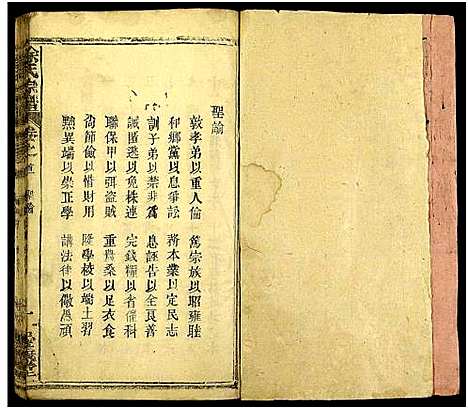 聖諭
敦孝弟以重人倫　篤宗族以昭雍睦
和鄉黨以息爭訟　務本業以定民志
訓子弟以禁非爲　息誣告以全良善
誡匿逃以免株連　完錢糧以省催科
聯保甲以弭盜賊　重農桑以足衣食
尚節儉以惜財用　隆學校以端士習
黜異端以崇正學　講法律以儆愚頑
徐氏宗譜　卷之首　聖諭